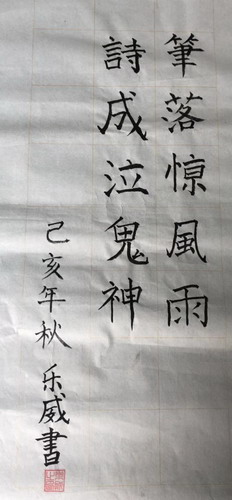 筆落惊風雨
詩成泣鬼神
己亥年秋 乐威書